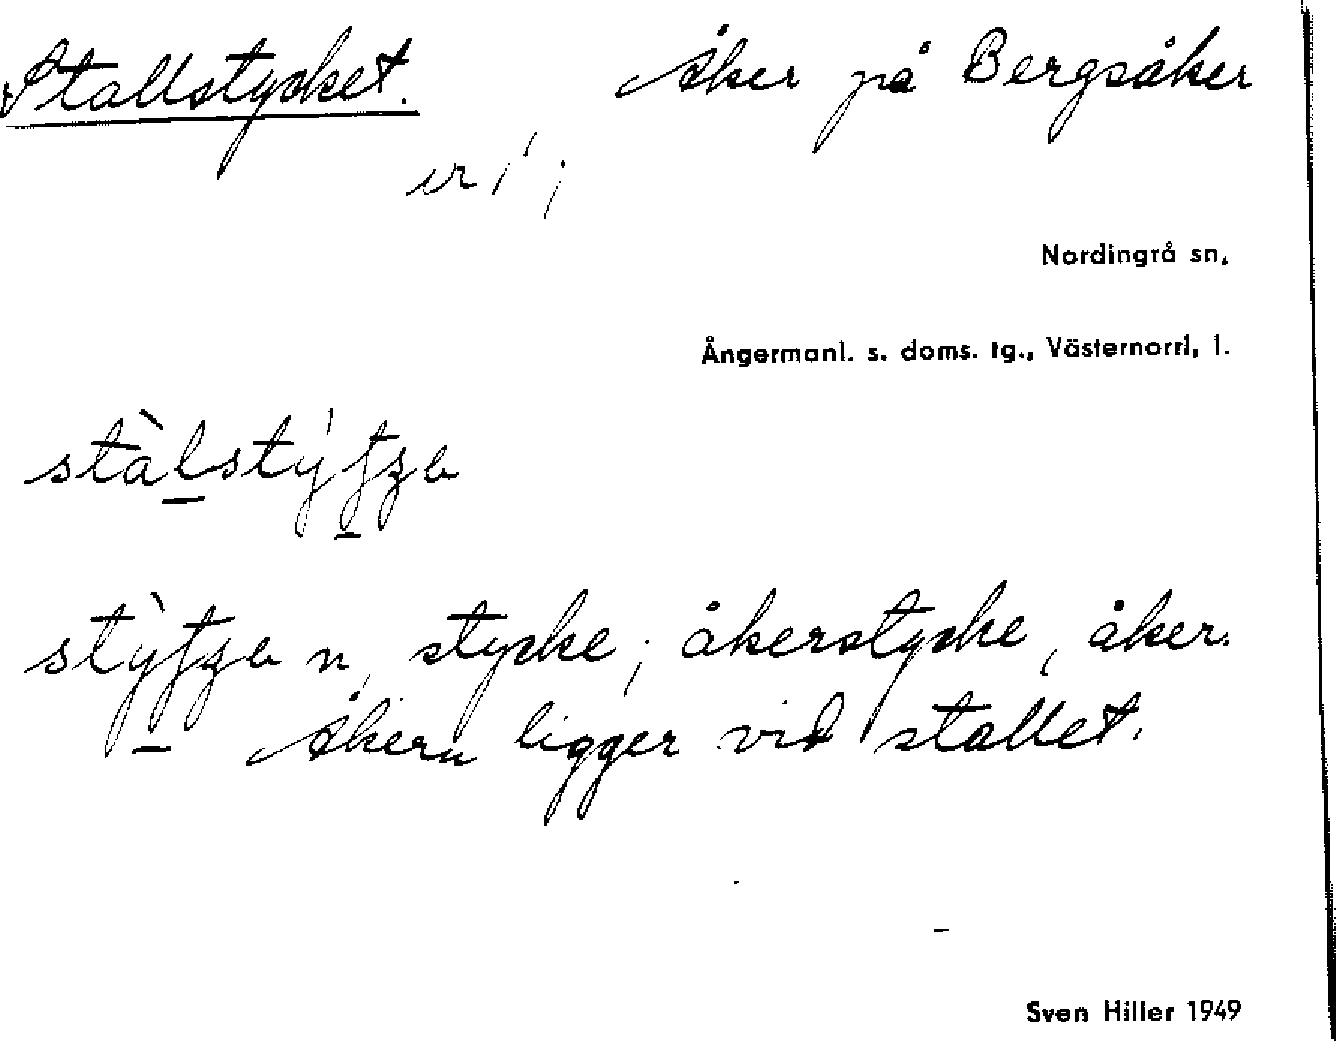 Stallstycket. Åker på Bergsåker
Nordingrå sn,
Ångermanl. s. doms. tg., Västernorrl, l.
n, stycke; åkerstycke, åker.
Åkern ligger vid stallet.
Sven Hiller 1949